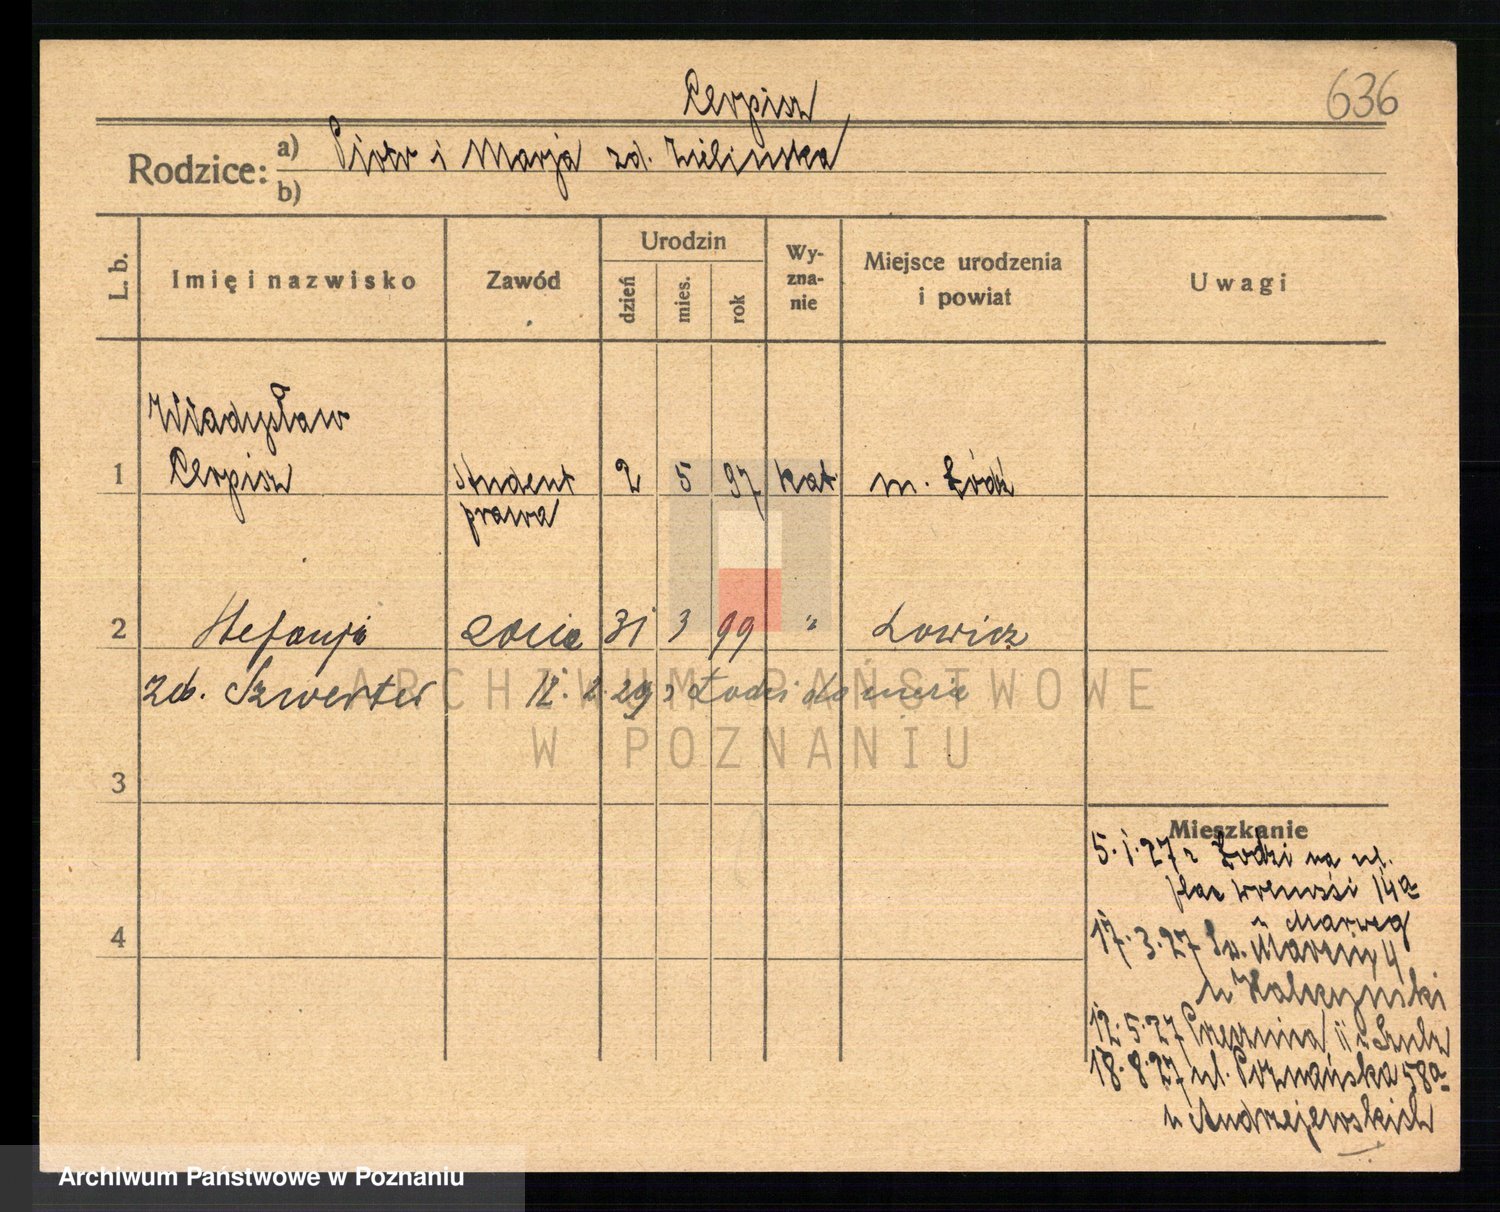 636
Cerpisz
Rodzice: a) Piotr i Marja zd. Zielińska
b)
L. b. Imię i nazwisko Zawód Urodzin dzień mies. rok Wy-zna-nie Miejsce urodzenia i powiat Uwagi
Władysław
1 Cerpisz student 2 5 97 kat m. Łódź
prawa
2 Stefanja 31 3 99 " Łowicz
zd. 12. 2. 29 z Łodzi do
ARCHIWUM PAŃSTWOWE
W POZNANIU
3
Mieszkanie
5.1.27 z Łodzi na ul.
plac wolności 14a
4
17.3.27 św. Marcin 4
12.5.27 11
18.8.27 ul. Poznańska 58a
u Andrzejewskich
Archiwum Państwowe w Poznaniu